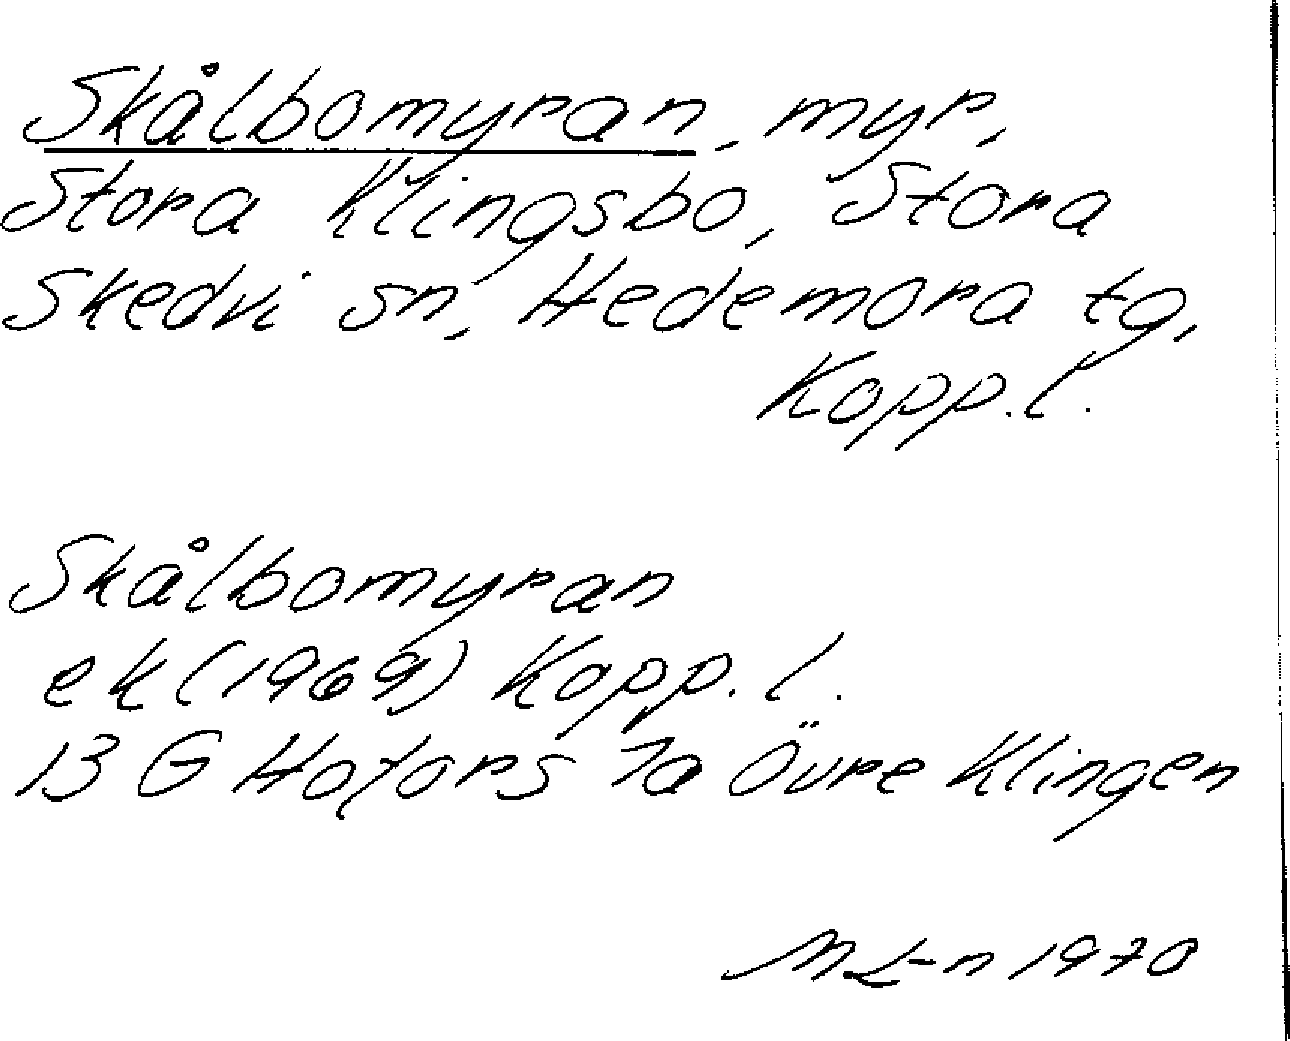 Skålbomyran, myr,
Stora Klingsbo, Stora
Skedvi sn, Hedemora tg,
Kopp.l.
Skålbomyran
ek (1969) Kopp. l.
13 G Hofors 7a Övre Klingen
M L-n 1970